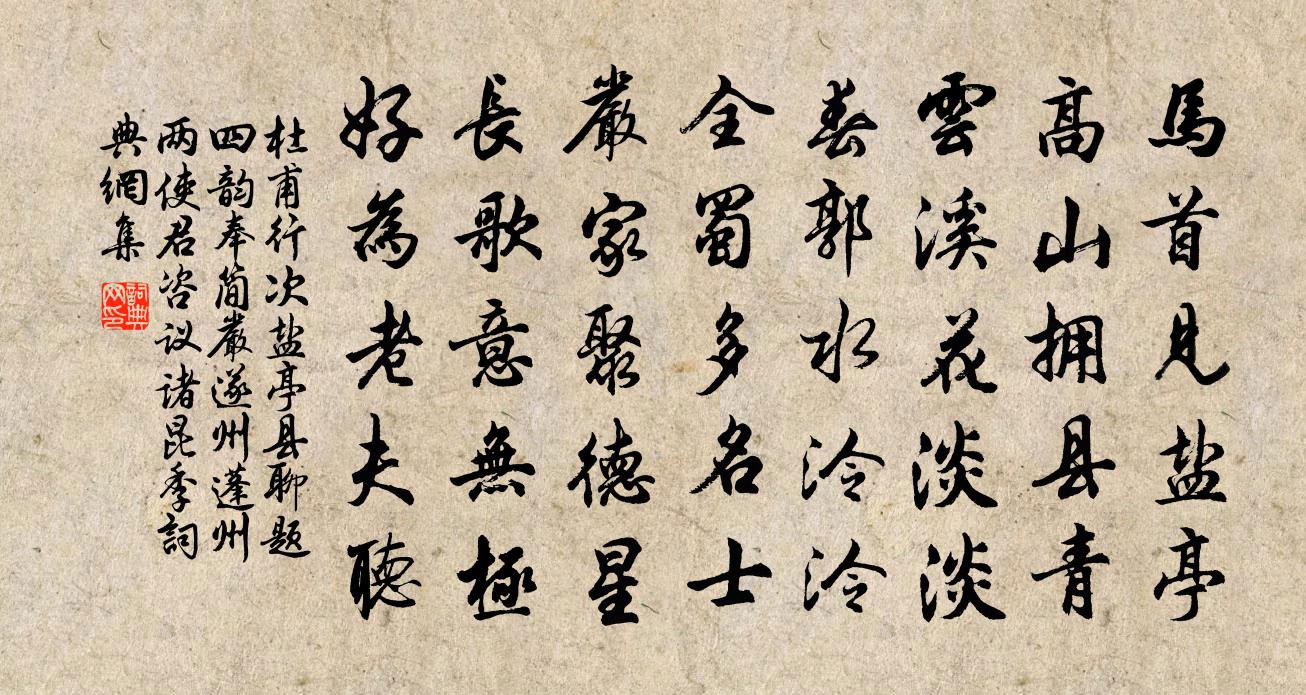 馬首見盐亭
高山拥县青
雲溪花淡淡
春郭水泠泠
全蜀多名士
嚴家聚德星
長歌意無極
好為老夫聽
杜甫行次盐亭县聊题
四韵奉简嚴遂州蓬州
两使君咨议诸昆季詞
典網集
詞典
网印